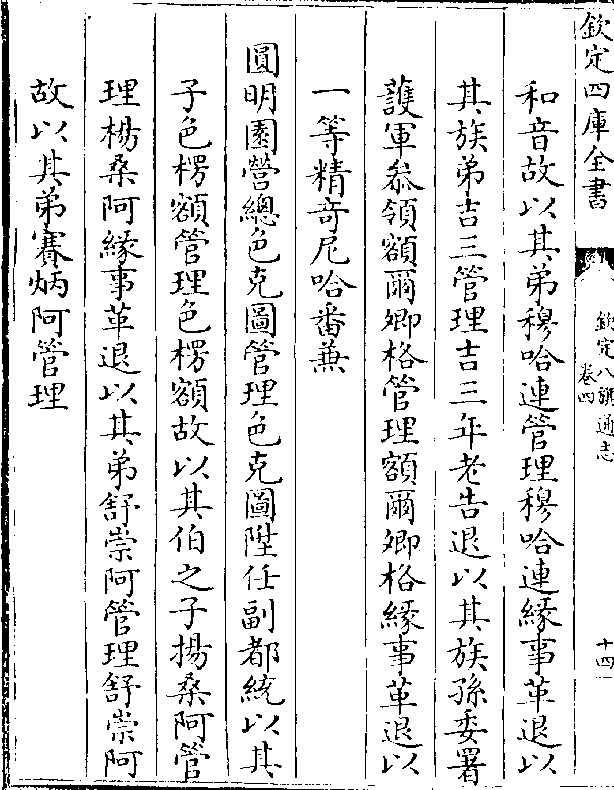 欽定四庫全書
欽定八旗通志
卷四
十四
和音故以其弟穆哈連管理穆哈連緣事革退以
其族弟吉三管理吉三年老告退以其族孫委署
護軍叅領額爾卿格管理額爾卿格緣事革退以
一等精竒尼哈番兼
圓明園營總色克圖管理色克圖陞任副都統以其
子色楞額管理色楞額故以其伯之子揚桑阿管
理楊桑阿緣事革退以其弟舒崇阿管理舒崇阿
故以其弟賽炳阿管理